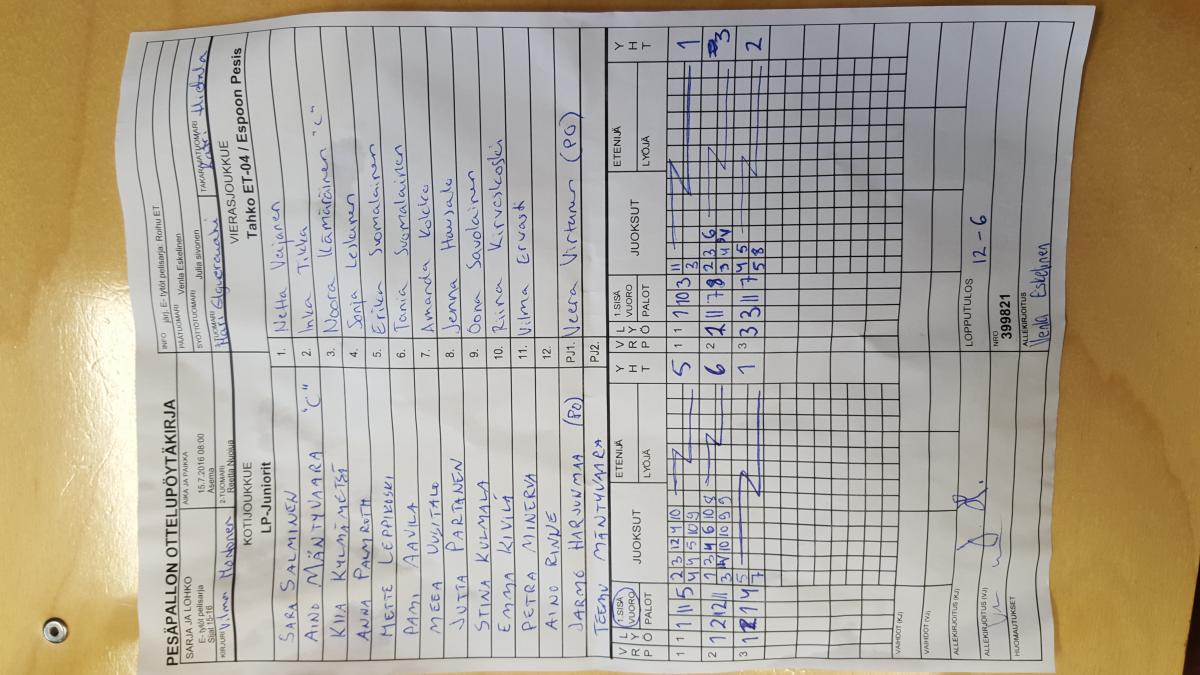 PESÄPALLON OTTELUPÖYTÄKIRJA
SARJA JA LOHKO
E- tytöt pelisarja
Sijat 15-16
AIKA JA PAIKKA
15.7.2016 08:00
Asema
KIRJURI Vilma Montonen
2-TUOMARI
Reetta Nuotua
INFO jarj. E- tytöt pelisarja: Roihu ET
PÄÄTUOMARI Venla Eskelinen
SYÖTTÖTUOMARI Julia sivonen
TUOMARI
TAKARAJATUOMARI
KOTIJOUKKUE
LP-Juniorit
VIERASJOUKKUE
Tahko ET-04 / Espoon Pesis
SARA SALMINEN 1. Netta Veijanen
AINO MÄNTYVAARA "C" 2. Inka Tikka
KIIA KYLMÄMETSÄ 3. Noora Kämäräinen "C"
ANNA PALMROTH 4. Sonja Leskinen
METTE LEPPIKOSKI 5. Erika Suomalainen
PAMI AAVILA 6. Tania Suomalainen
MEEA UUSITALO 7. Amanda Kokko
JUTTA PARTANEN 8. Jenna Hausalo
STINA KULMALA 9. Oona Savolainen
EMMA KIVILÄ 10. Riina Kirveskoski
PETRA MINERVA 11. Vilma Ervasti
AINO RINNE 12.
JARMO HARJUNMAA (PO) PJ1. Veera Virtanen (PO)
TEEMU MÄNTYVAARA PJ2.
V R P L Y Ö 1.SISÄ VUORO PALOT JUOKSUT ETENIJÄ LYÖJÄ Y H T
V R P L Y Ö 1.SISÄ VUORO PALOT JUOKSUT ETENIJÄ LYÖJÄ Y H T
1 1 11 5 2 3 12 4 10 5
4 4 5 10 9
1 1 10 3 11 1
3
2 1 12 11 1 3 4 6 10 8 6
3 4 10 10 9 9
2 2 11 7 8 2 3 6 3
3 4
3 1 4 5 1
7
3 3 11 7 4 5 2
5 8
VAIHDOT (KJ)
VAIHDOT (VJ)
ALLEKIRJOITUS (KJ)
ALLEKIRJOITUS (VJ)
HUOMAUTUKSET
LOPPUTULOS 12-6
NRO
399821
ALLEKIRJOITUS
Venla Eskelinen